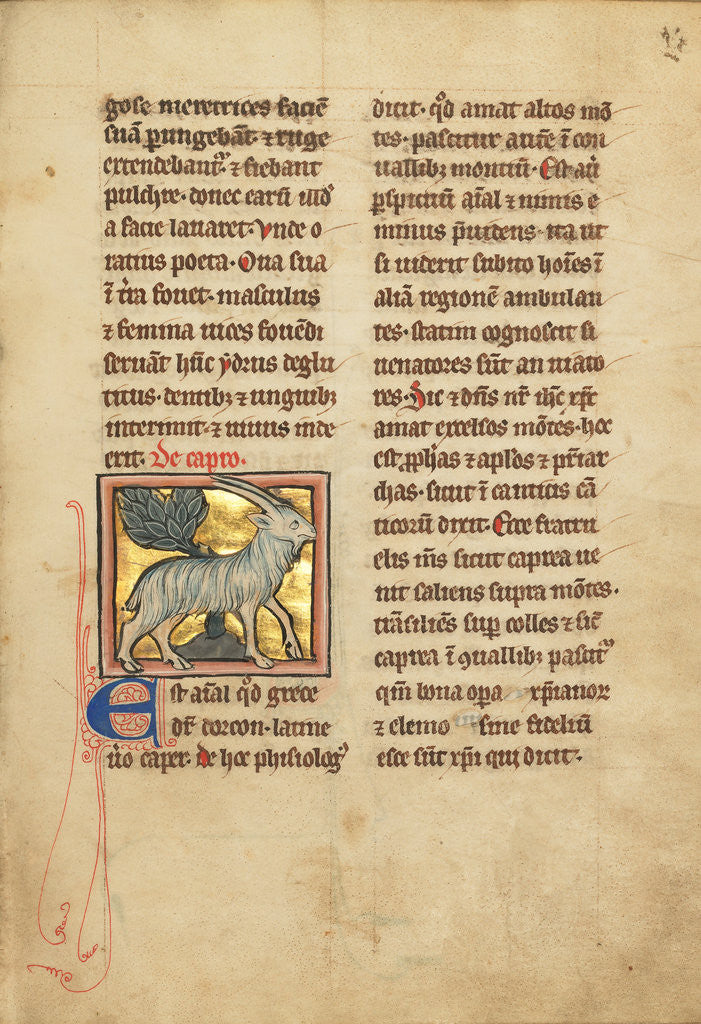 gose meretrices faciē
suā ꝑungebāt ⁊ ruge
extendebantᷣ. ⁊ fiebant
pulchre. donec earū illᵈ
a facie lauaret. Vnde o
ratius poeta. Oua sua
ī t̄ra fouet. masculus
⁊ femina uices fouēdi
seruāt hūc ẏdrus deglu
titus. dentibꝫ ⁊ unguibꝫ
interimit. ⁊ uiuus inde
exit. De capro.
Est aīal qᵈ grece
dr̄ dorcon. latine
ůo caper. de hoc phisiologꝰ
dicit. qᵈ amat altos mō
tes. pascitur autē ī con
uallibꝫ montiū. Est aū
ꝑspicuū aīal ⁊ nimis e
minus p̄uidens. ita ut
si uiderit subito hoīes ī
aliā regionē ambulan
tes. statim cognoscit si
uenatores sūt an uiato
res. Sic ⁊ dn̄s nr̄ ihc̄ xp̄c
amat excelsos mōtes. hoc
est ꝓph̄as ⁊ apl̄os ⁊ pr̄iar
chas. sicut ī canticis cā
ticorū dicit. Ecce fratru
elis m̄s sicut caprea ue
nit saliens supra mōtes.
trāsiliēs suꝑ colles ⁊ sic̄
caprea ī ꝯuallibꝫ pascitᷣ
qm̄ bona opa xp̄ianoꝝ
⁊ elemo sine fideliū
esce sūt xp̄i qui dicit.